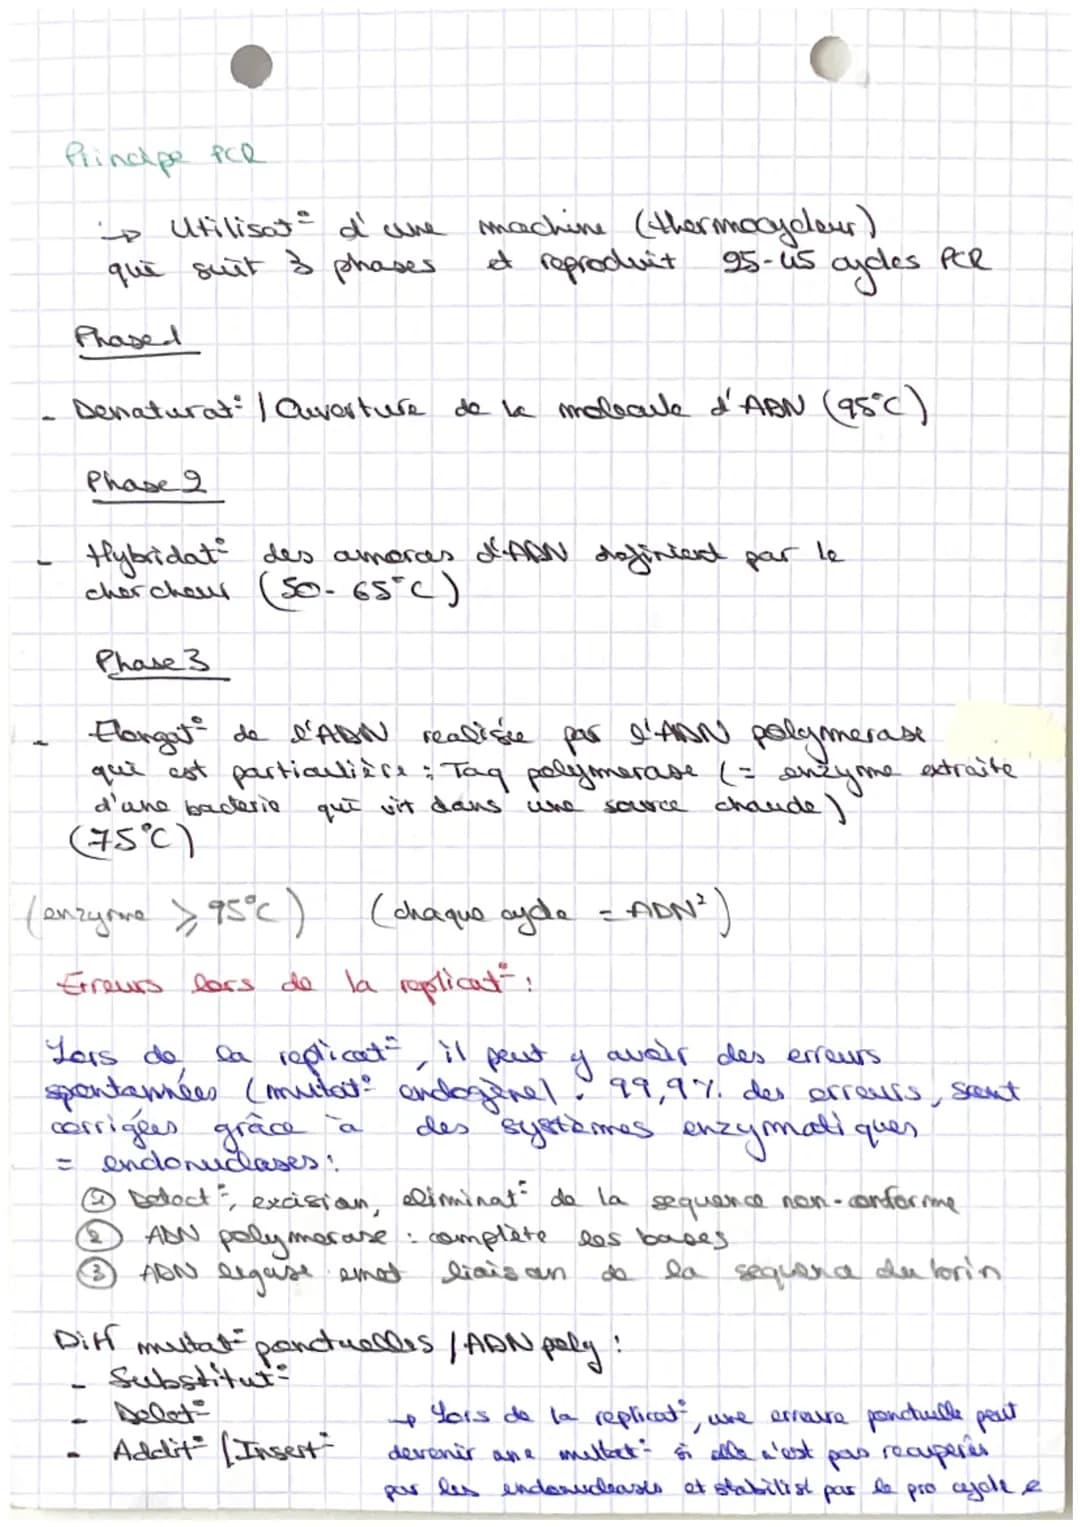 Principe PCR
↳ Utilisat° d'une machine (thermocycleur)
qui suit 3 phases et reproduit 25-45 cycles PCR
Phase 1
- Denaturat° / Ouverture de la molecule d'ADN (95°C)
Phase 2
- Hybridat° des amorces d'ADN definient par le
chercheur (50-65°C)
Phase 3
- Elongat° de l'ADN realisée par l'ADN polymerase
qui est particulière : Taq polymerase (= enzyme extraite
d'une bacterie qui vit dans une source chaude)
(75°C)
(enzyme ⩾ 95°C) (chaque cycle = ADN²)
Erreurs lors de la replicat° :
Lors de la replicat°, il peut y avoir des erreurs
spontannées (mutat° endogène). 99,9% des erreurs, sont
corrigées grâce à des systèmes enzymatiques
= endonucleases :
① Detect°, excision, eliminat° de la sequence non-conforme
② ADN polymerase : complète les bases
③ ADN ligase liaison de la sequence du brin
Diff mutat° ponctuelles / ADN poly :
- Substitut°
- Delet°
- Addit° / Insert°
→ Lors de la replicat°, une erreure ponctuelle peut
devenir une mutat° si elle n'est pas recuperée
par les endonucleases et stabilisé par le pro cycle